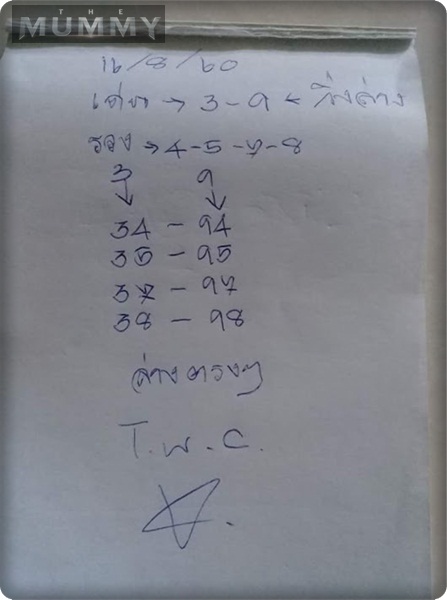 THE
MUMMY
16/8/60
เด่น → 3-9 ← วิ่งล่าง
รอง → 4-5-7-8
3 9
↓ ↓
34 - 94
35 - 95
37 - 97
38 - 98
ล่างตรงๆ
T.W.C.